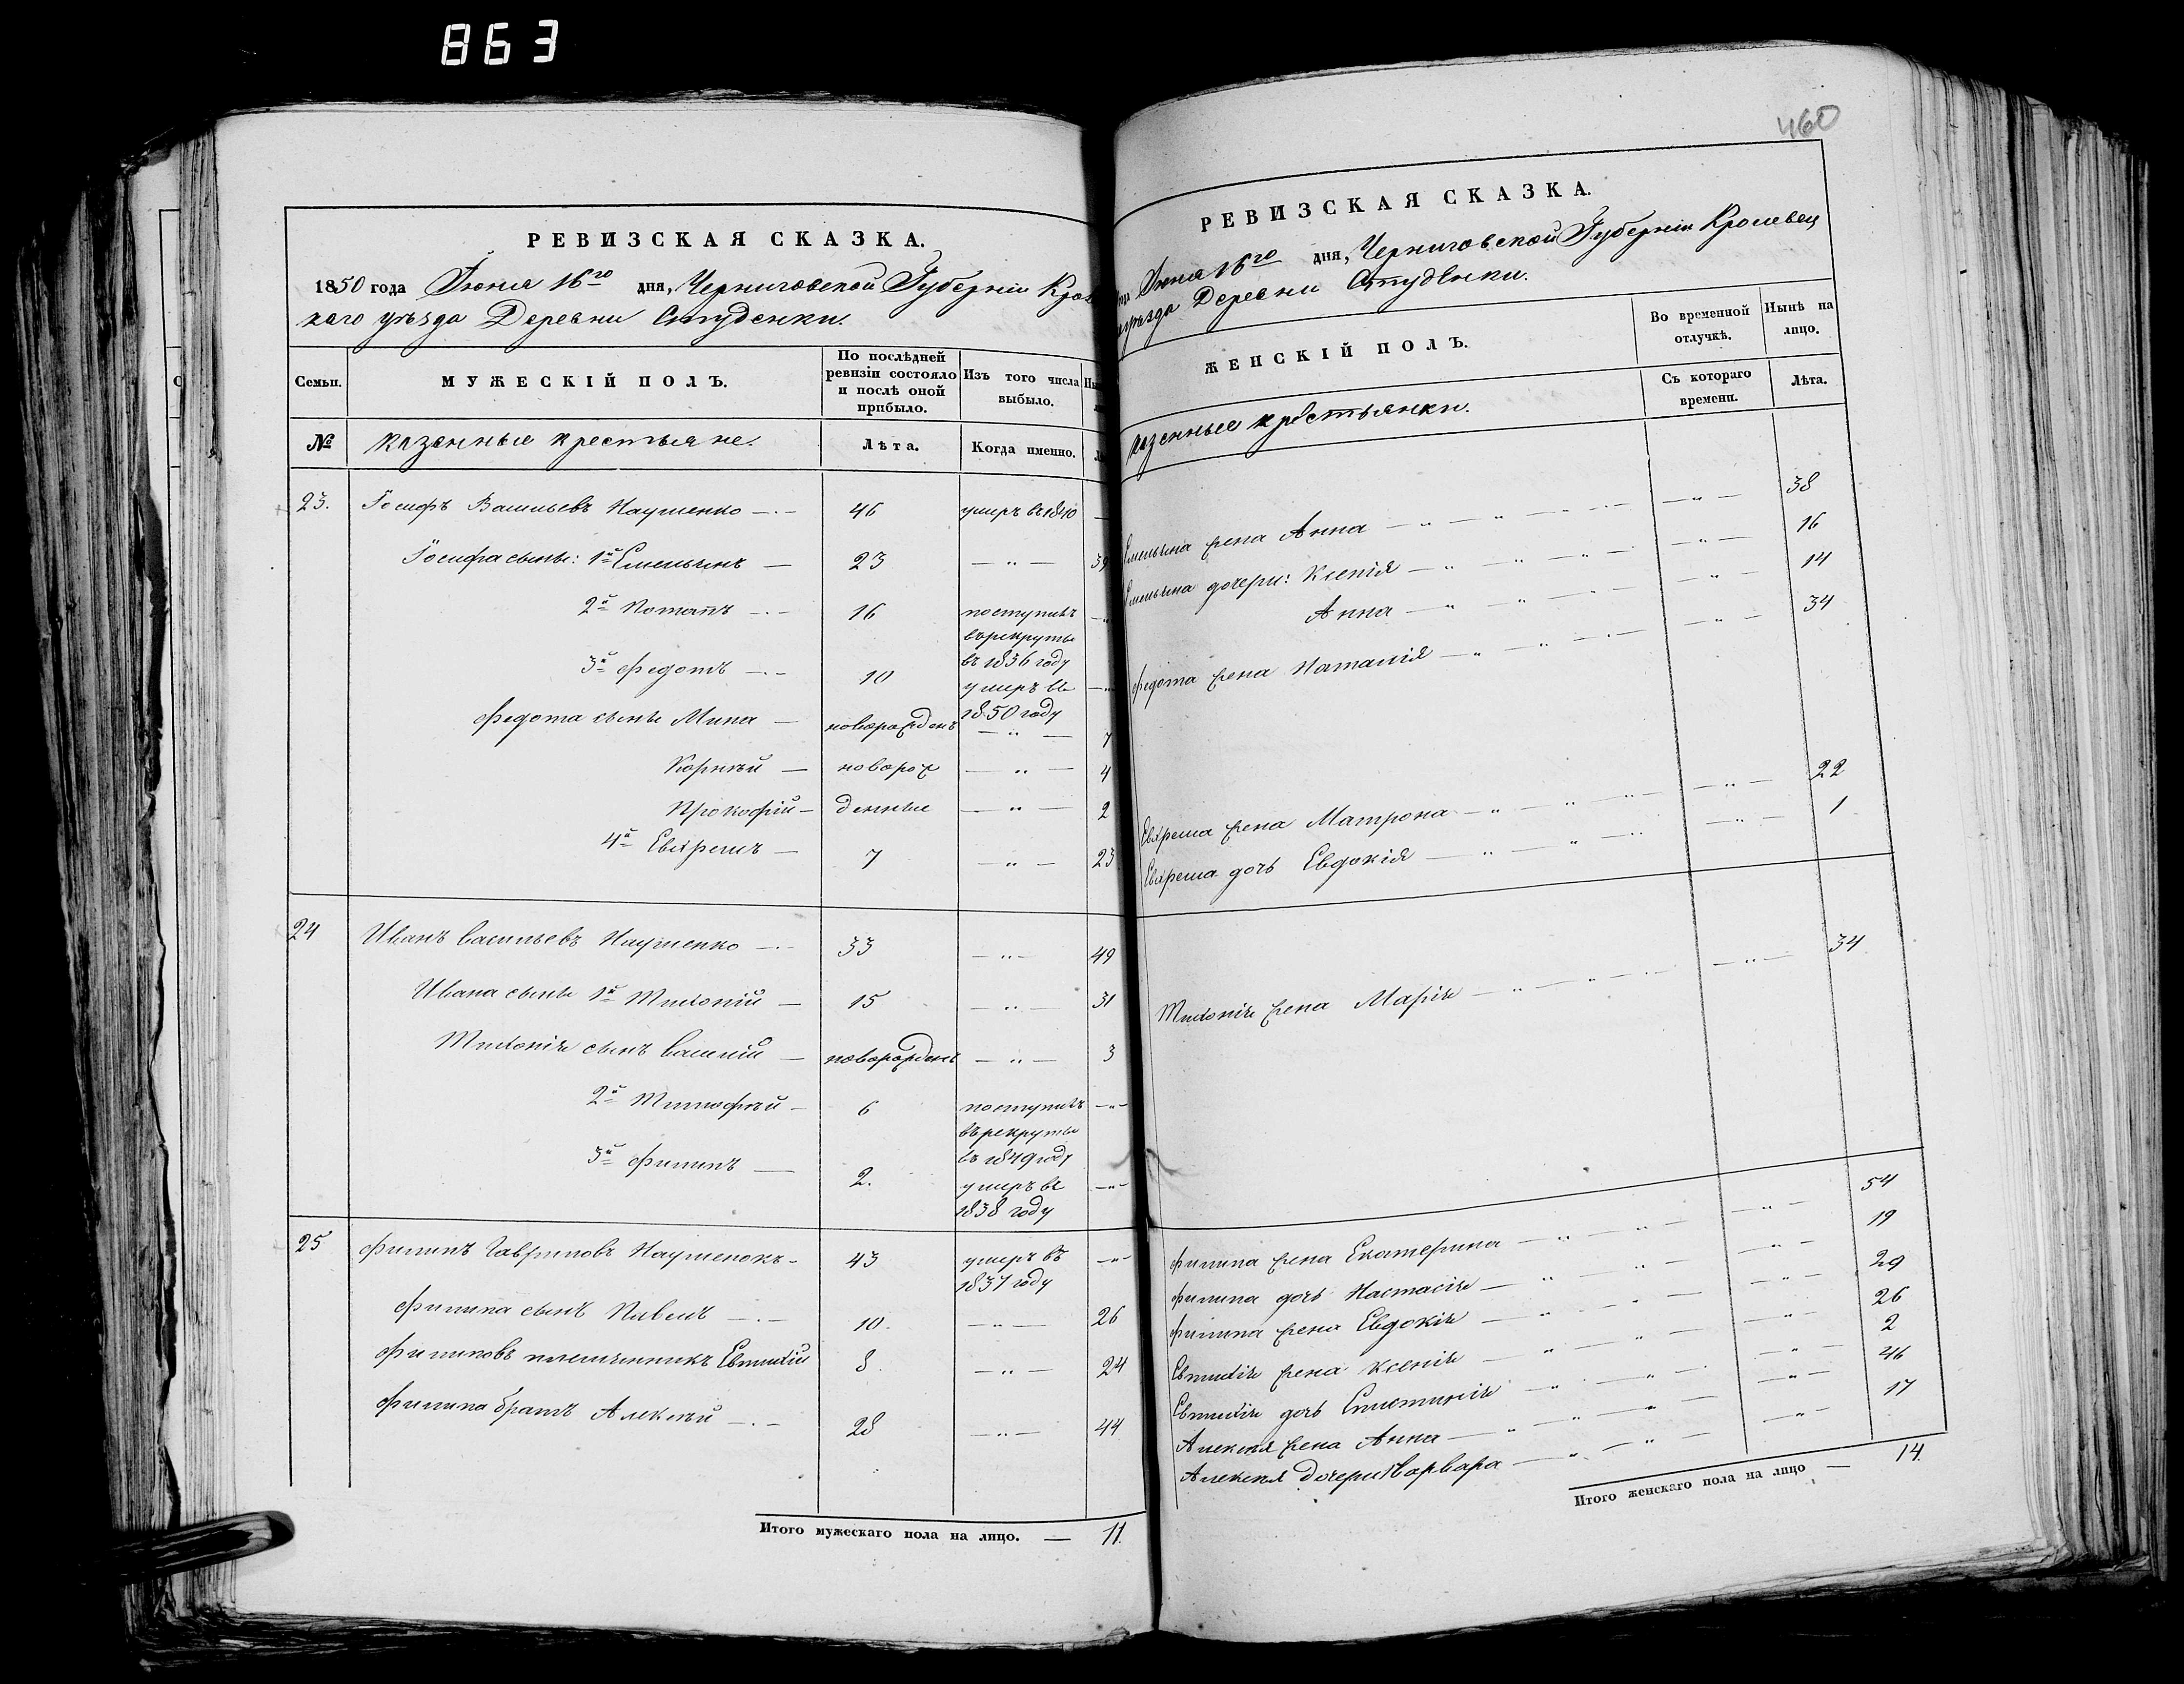 863
РЕВИЗСКАЯ СКАЗКА.
1850 года Іюня 16го дня, Черниговской Губерніи Крол
каго уѣзда Деревни Студенки.
Семьи.
МУЖЕСКІЙ ПОЛЪ.
По послѣдней ревизіи состояло и послѣ оной прибыло.
Изъ того числа выбыло.
№
казенные крестьяне.
Лѣта.
Когда именно.
23. Іосифъ Васильевъ Наушенко 46 умеръ въ 1840
Іосифа сыны: 1й Емельянъ 23 39
2й Потапъ 16 поступилъ
въ рекруты
въ 1836 году
3й Федотъ 10 умеръ въ
1850 году
Федота сыны Мина новорожденъ 7
Корнѣй новорож 4
Прокофій денные 2
4й Евхремъ 7 23
24 Иванъ Васильевъ Наушенко 33 49
Ивана сыны 1й 15 31
сынъ Василій новорожденъ 3
2й Тимофѣй 6 поступилъ
въ рекруты
въ 1849 году
3й Филипъ 2. умеръ въ
1838 году
25 Филипъ Гавриловъ Наушенокъ 43 умеръ въ
1837 году
Филипа сынъ Павелъ 10. 26
Филиповъ племянникъ Евтихій 8. 24
Филипа братъ Алексѣй 28 44
Итого мужескаго пола на лицо. — 11.
460
РЕВИЗСКАЯ СКАЗКА.
года Іюня 16го дня, Черниговской Губерніи Кролевец
уѣзда Деревни Студѣнки.
ЖЕНСКІЙ ПОЛЪ.
Во временной отлучкѣ.
Нынѣ на лицо.
казенные крестьянки.
Съ котораго времени.
Лѣта.
Емельяна жена Анна 38
Емельяна дочери: Ксенія 16
Анна 14
Федота жена Наталія 34
Евхрема жена Матрона 22
Евхрема дочь Евдокія 1
жена Марія 34
Филипа жена Екатерина 54
Филипа дочь Настасія 19
Филипа жена Евдокія 29
Евтихія жена Ксенія 26
Евтихія дочь 2
Алексѣя жена Анна 46
Алексѣя дочери Варвара 17
Итого женскаго пола на лицо — 14.